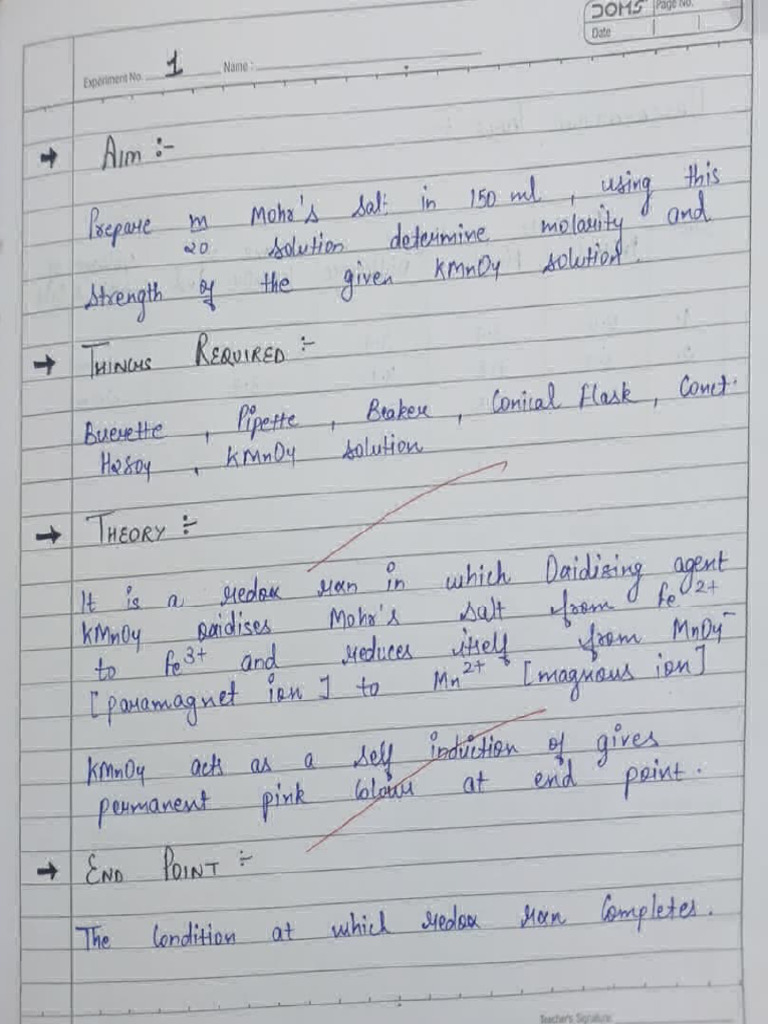 DOMS Page No.
Date
Experiment No. 1 Name :
→ AIM :-
Prepare m/20 Mohr's Salt in 150 ml , using this
solution determine molarity and
strength of the given KMnO4 solution.
→ THINGS REQUIRED :-
Buerette , Pipette , Beaker , Conical flask , Conct.
H2SO4 , KMnO4 solution
→ THEORY :-
It is a redox rxn in which Oxidising agent
KMnO4 oxidises Mohr's salt from fe2+
to fe3+ and reduces itself from MnO4-
[paramagnet ion] to Mn2+ [magnous ion]
KMnO4 acts as a self induction of gives
permanent pink Colour at end point.
→ END POINT :-
The Condition at which redox rxn Completes.
Teacher's Signature